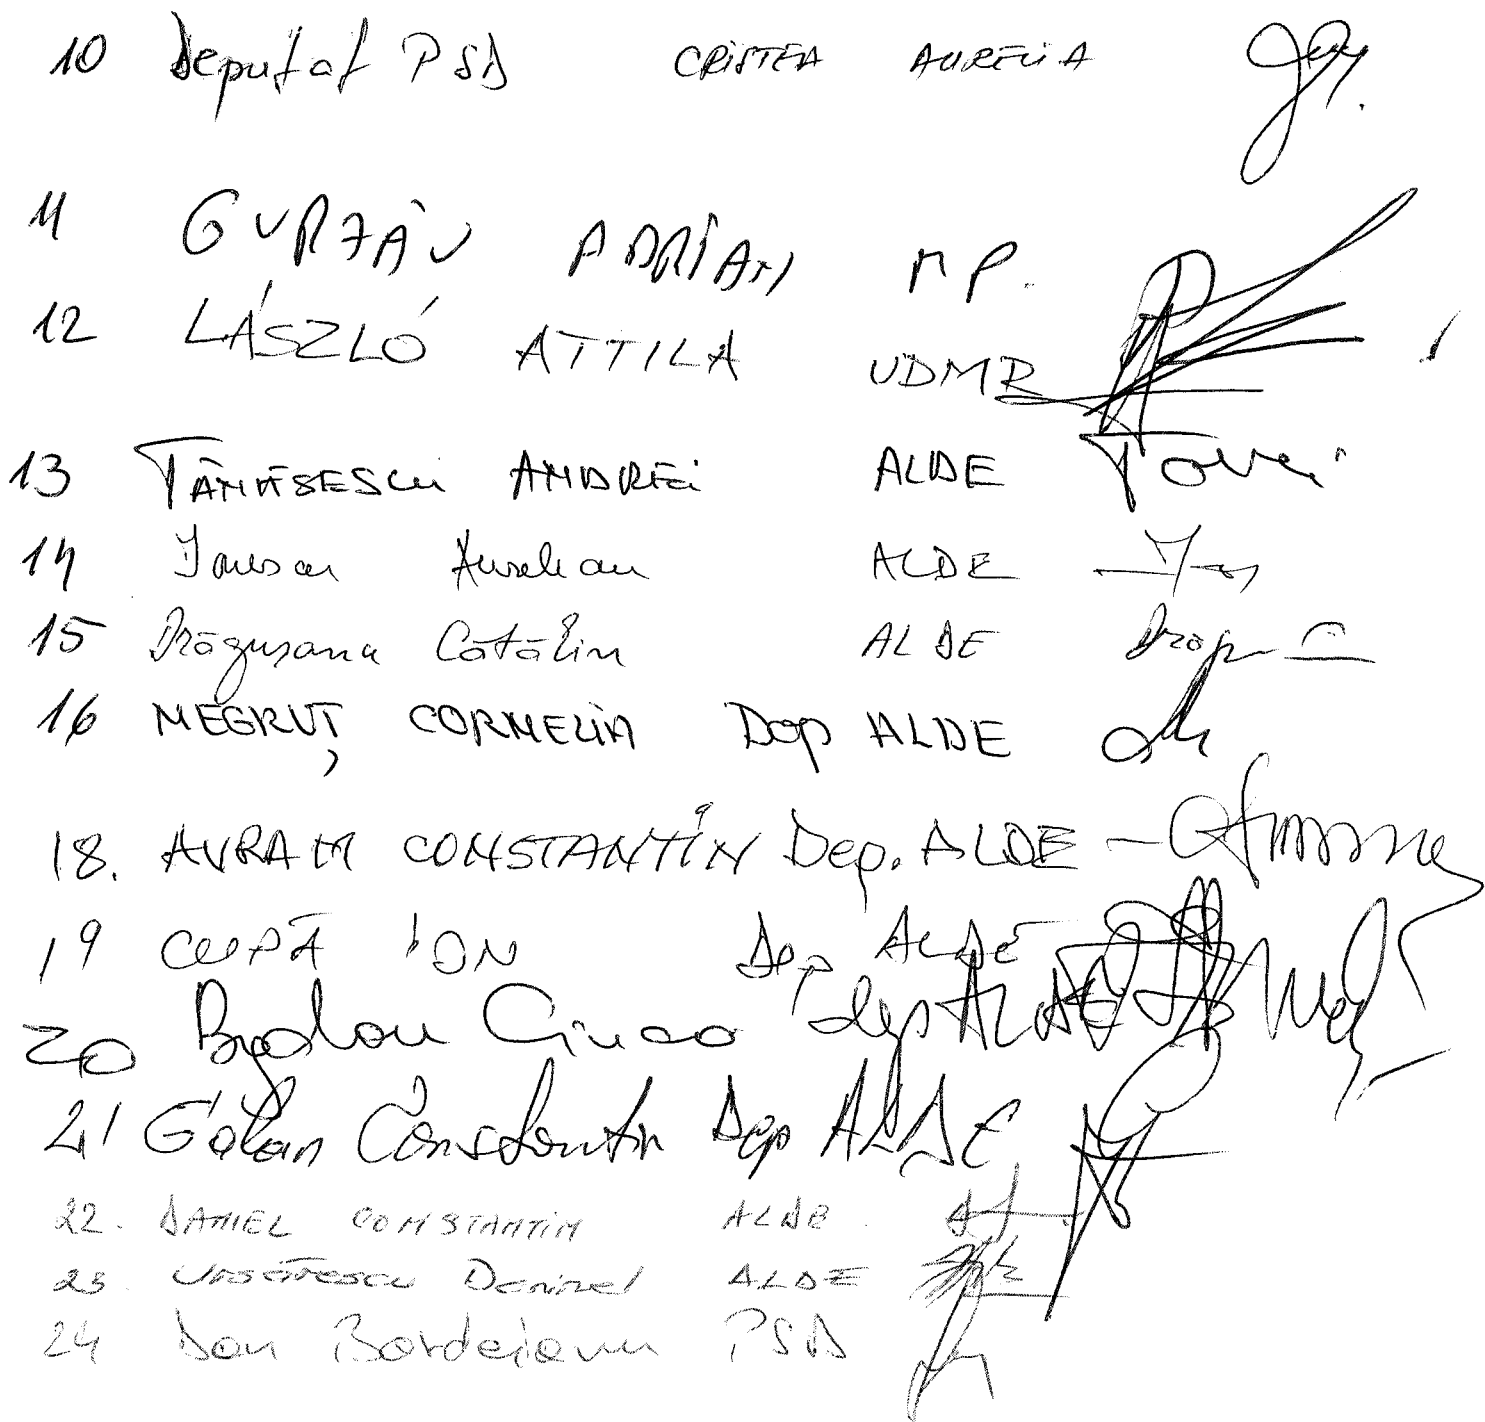 10 Deputat PSD CRISTEA AURELIA
11 GURZĂU ADRIAN MP.
12 LÁSZLÓ ATTILA UDMR
13 TĂNĂSESCU ANDREI ALDE
14 Ionescu Aurelian ALDE
15 Drăgușanu Cătălin ALDE
16 NEGRUȚ CORNELIA Dep ALDE
18. AVRAM CONSTANTIN Dep. ALDE -
19 CUPĂ ION Dep ALDE
20 Bogdan Ciuca dep ALDE
21 Galan Constantin Dep ALDE
22. DANIEL CONSTANTIN ALDE.
23 ALDE
24 Dan Bordeianu PSD